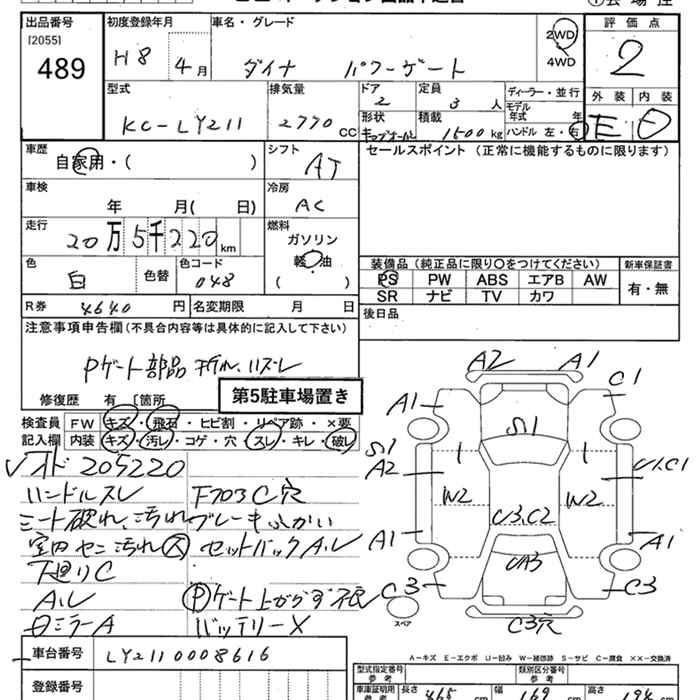 出品番号 初度登録年月 車名・グレード 2WD 評価点
[2055] 489 H8 年 4月 ダイナ パワーゲート 4WD 2
型式 排気量 ドア 定員 ディーラー・並行 外装 内装
KC-LY211 2770 CC 2 3人 モデル年式 年 E
形状 積載 1500kg ハンドル 左・右
車歴 シフト セールスポイント (正常に機能するものに限ります)
自家用・( ) AT
車検 冷房
年 月( 日) AC
走行 燃料
20万5千220km ガソリン
色 色替 色コード 軽油 装備品 (純正品に限り○をつけてください) 新車保証書
白 048 ( ) PS PW ABS エアB AW 有・無
SR ナビ TV カワ
R券 4640円 名変期限 月 日 後日品
注意事項申告欄 (不具合内容等は具体的に記入して下さい)
Pゲート部品
修復歴 有 〔箇所 第5駐車場置き
検査員 FW キズ・飛石・ヒビ割・リペア跡・×要
記入欄 内装 キズ・汚れ・コゲ・穴・スレ・キレ・破レ
205220
ハンドルスレ F703C穴
シート破れ、汚れ ブレーキふかい
室内 汚れ 大 セットバックA.レ
下廻りC
A.レ Pゲート上がらず
ミラーA バッテリーX
A2 A1
A1 C1
S1
A2
1 1 U1.C1
W2 W2
U3.C2
A1 A1
UA3
C3 C3
スペア C3穴
A-キズ E-エクボ U-凹み W-補修跡 S-サビ C-腐食 XX-交換済
車台番号 LY2110008616
登録番号
型式指定番号 参考 類別区分番号 参考
車庫証明用 参考 長さ 468 cm 幅 169 cm 高さ 196 cm